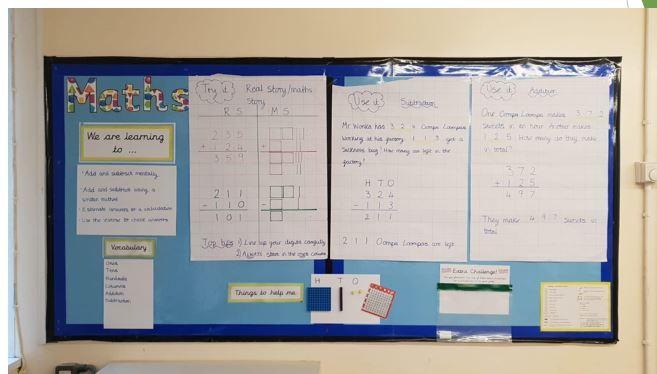 Maths
We are learning
to ...
• Add and subtract mentally
• Add and subtract using a
written method
• Estimate answers to a calculation
• Use the inverse to check answers
Vocabulary
Ones
Tens
Hundreds
Columns
Addition
Subtraction
Try it
Real Story/maths
Story
R S
M S
2 3 5
+ 1 2 4
3 5 9
+
2 1 1
- 1 1 0
1 0 1
-
Top tips 1) Line up your digits carefully
2) Always start in the ones column
Things to help me
Use it
Subtraction
Mr Wonka has 3 2 4 Oompa Loompas
working at his factory. 1 1 3 get a
sickness bug! How many are left in the
factory?
H T O
3 2 4
- 1 1 3
2 1 1
2 1 1 Oompa Loompas are left
H T O
Use it
Addition
One Oompa Loompa makes 3 7 2
sweets in an hour. Another makes
1 2 5. How many do they make
in total?
3 7 2
+ 1 2 5
4 9 7
They make 4 9 7 sweets in
total
Extra Challenge!